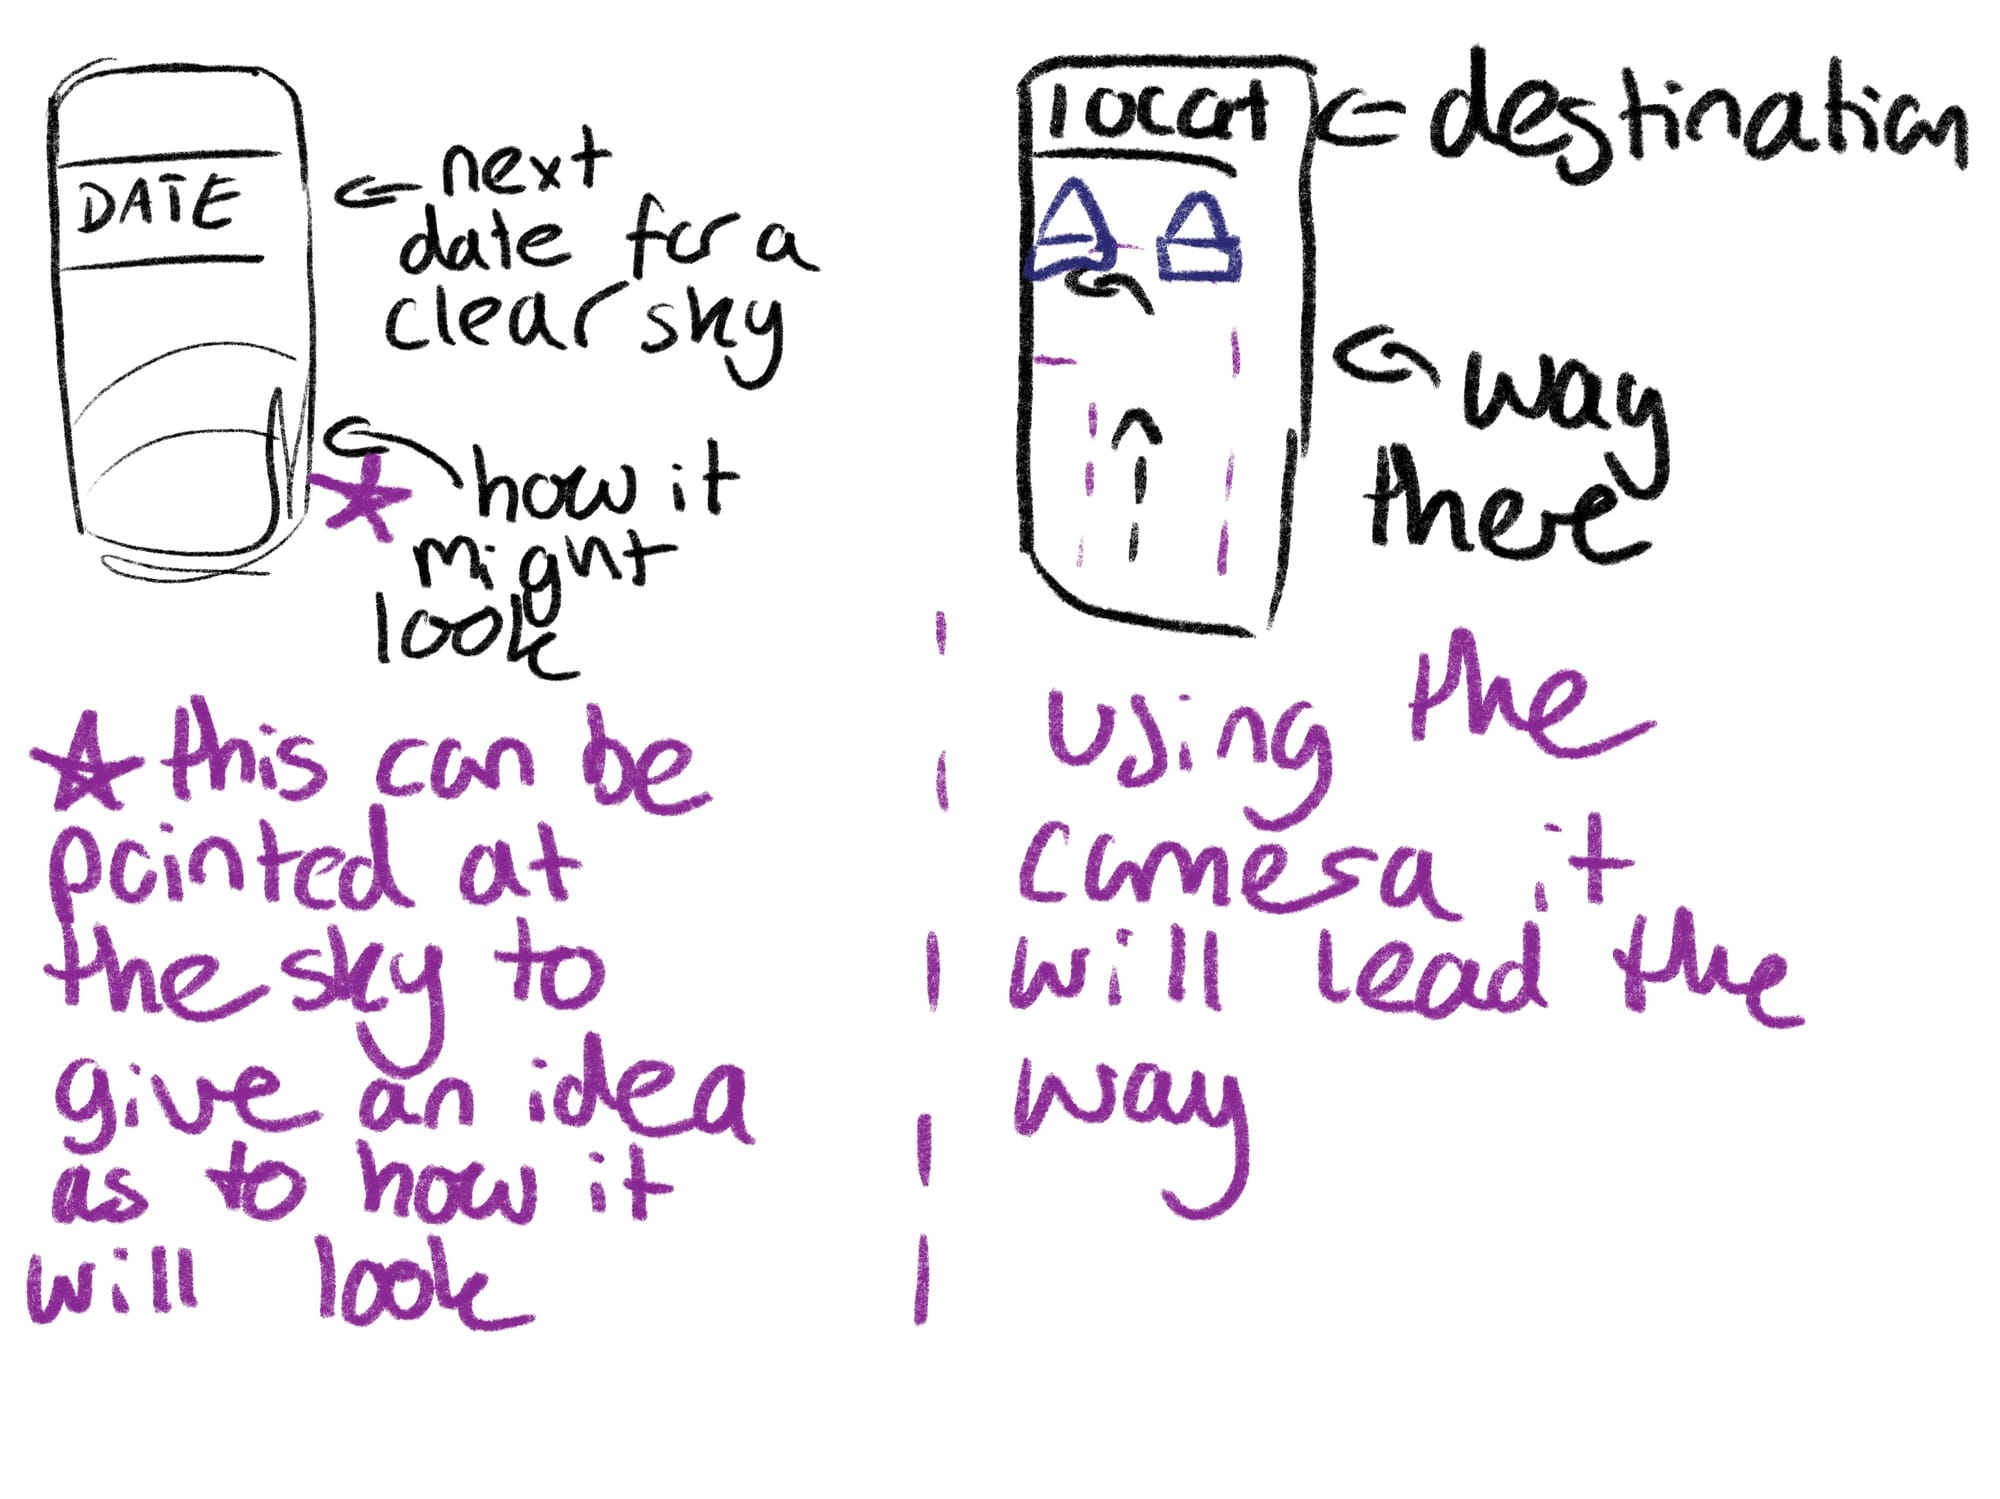 DATE
next
date for a
clear sky
how it
might
look
this can be
pointed at
the sky to
give an idea
as to how it
will look
locat
destination
way
there
using the
camera it
will lead the
way